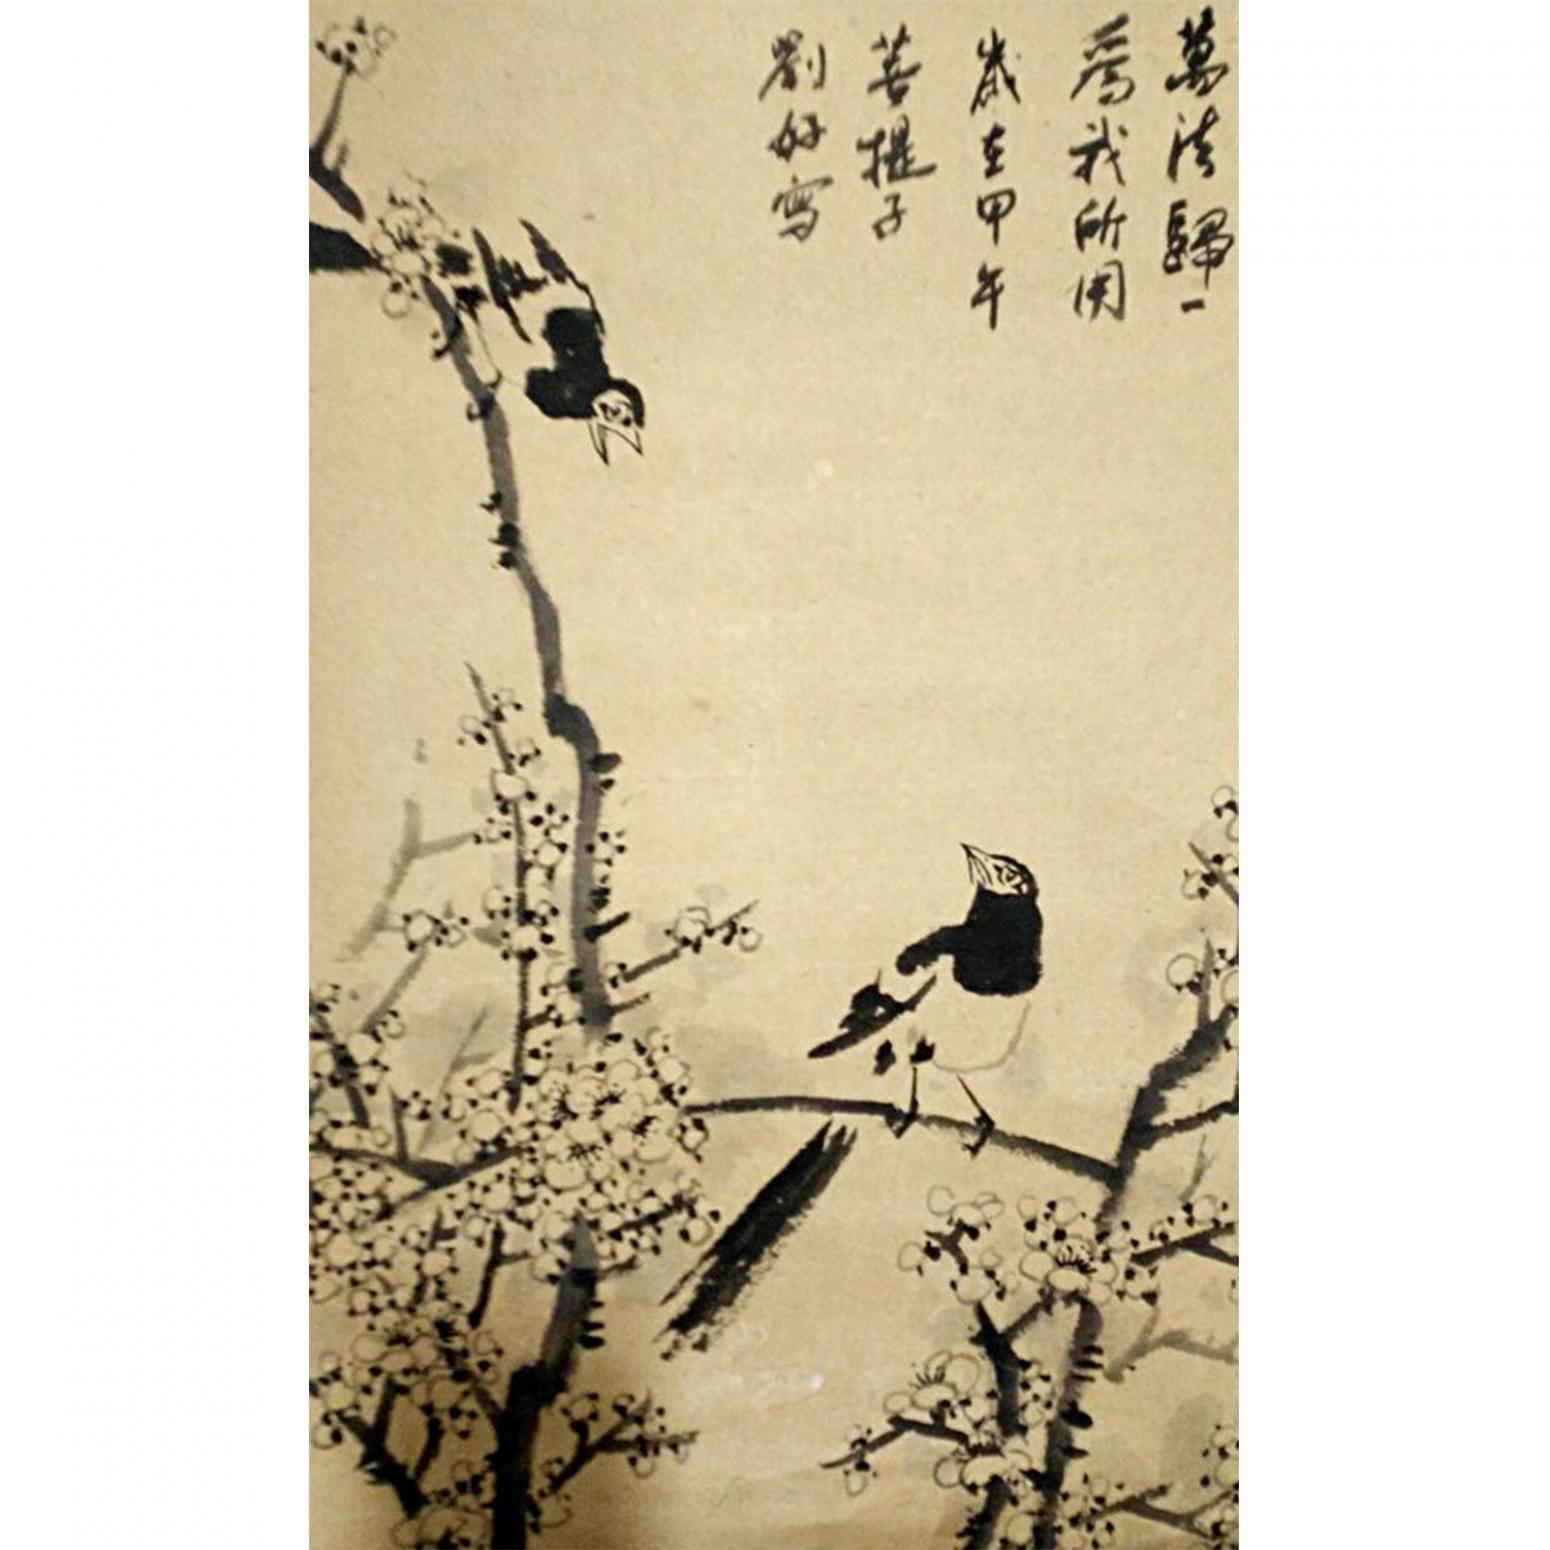 萬法歸一
為我所用
歲在甲午
菩提子
劉好寫